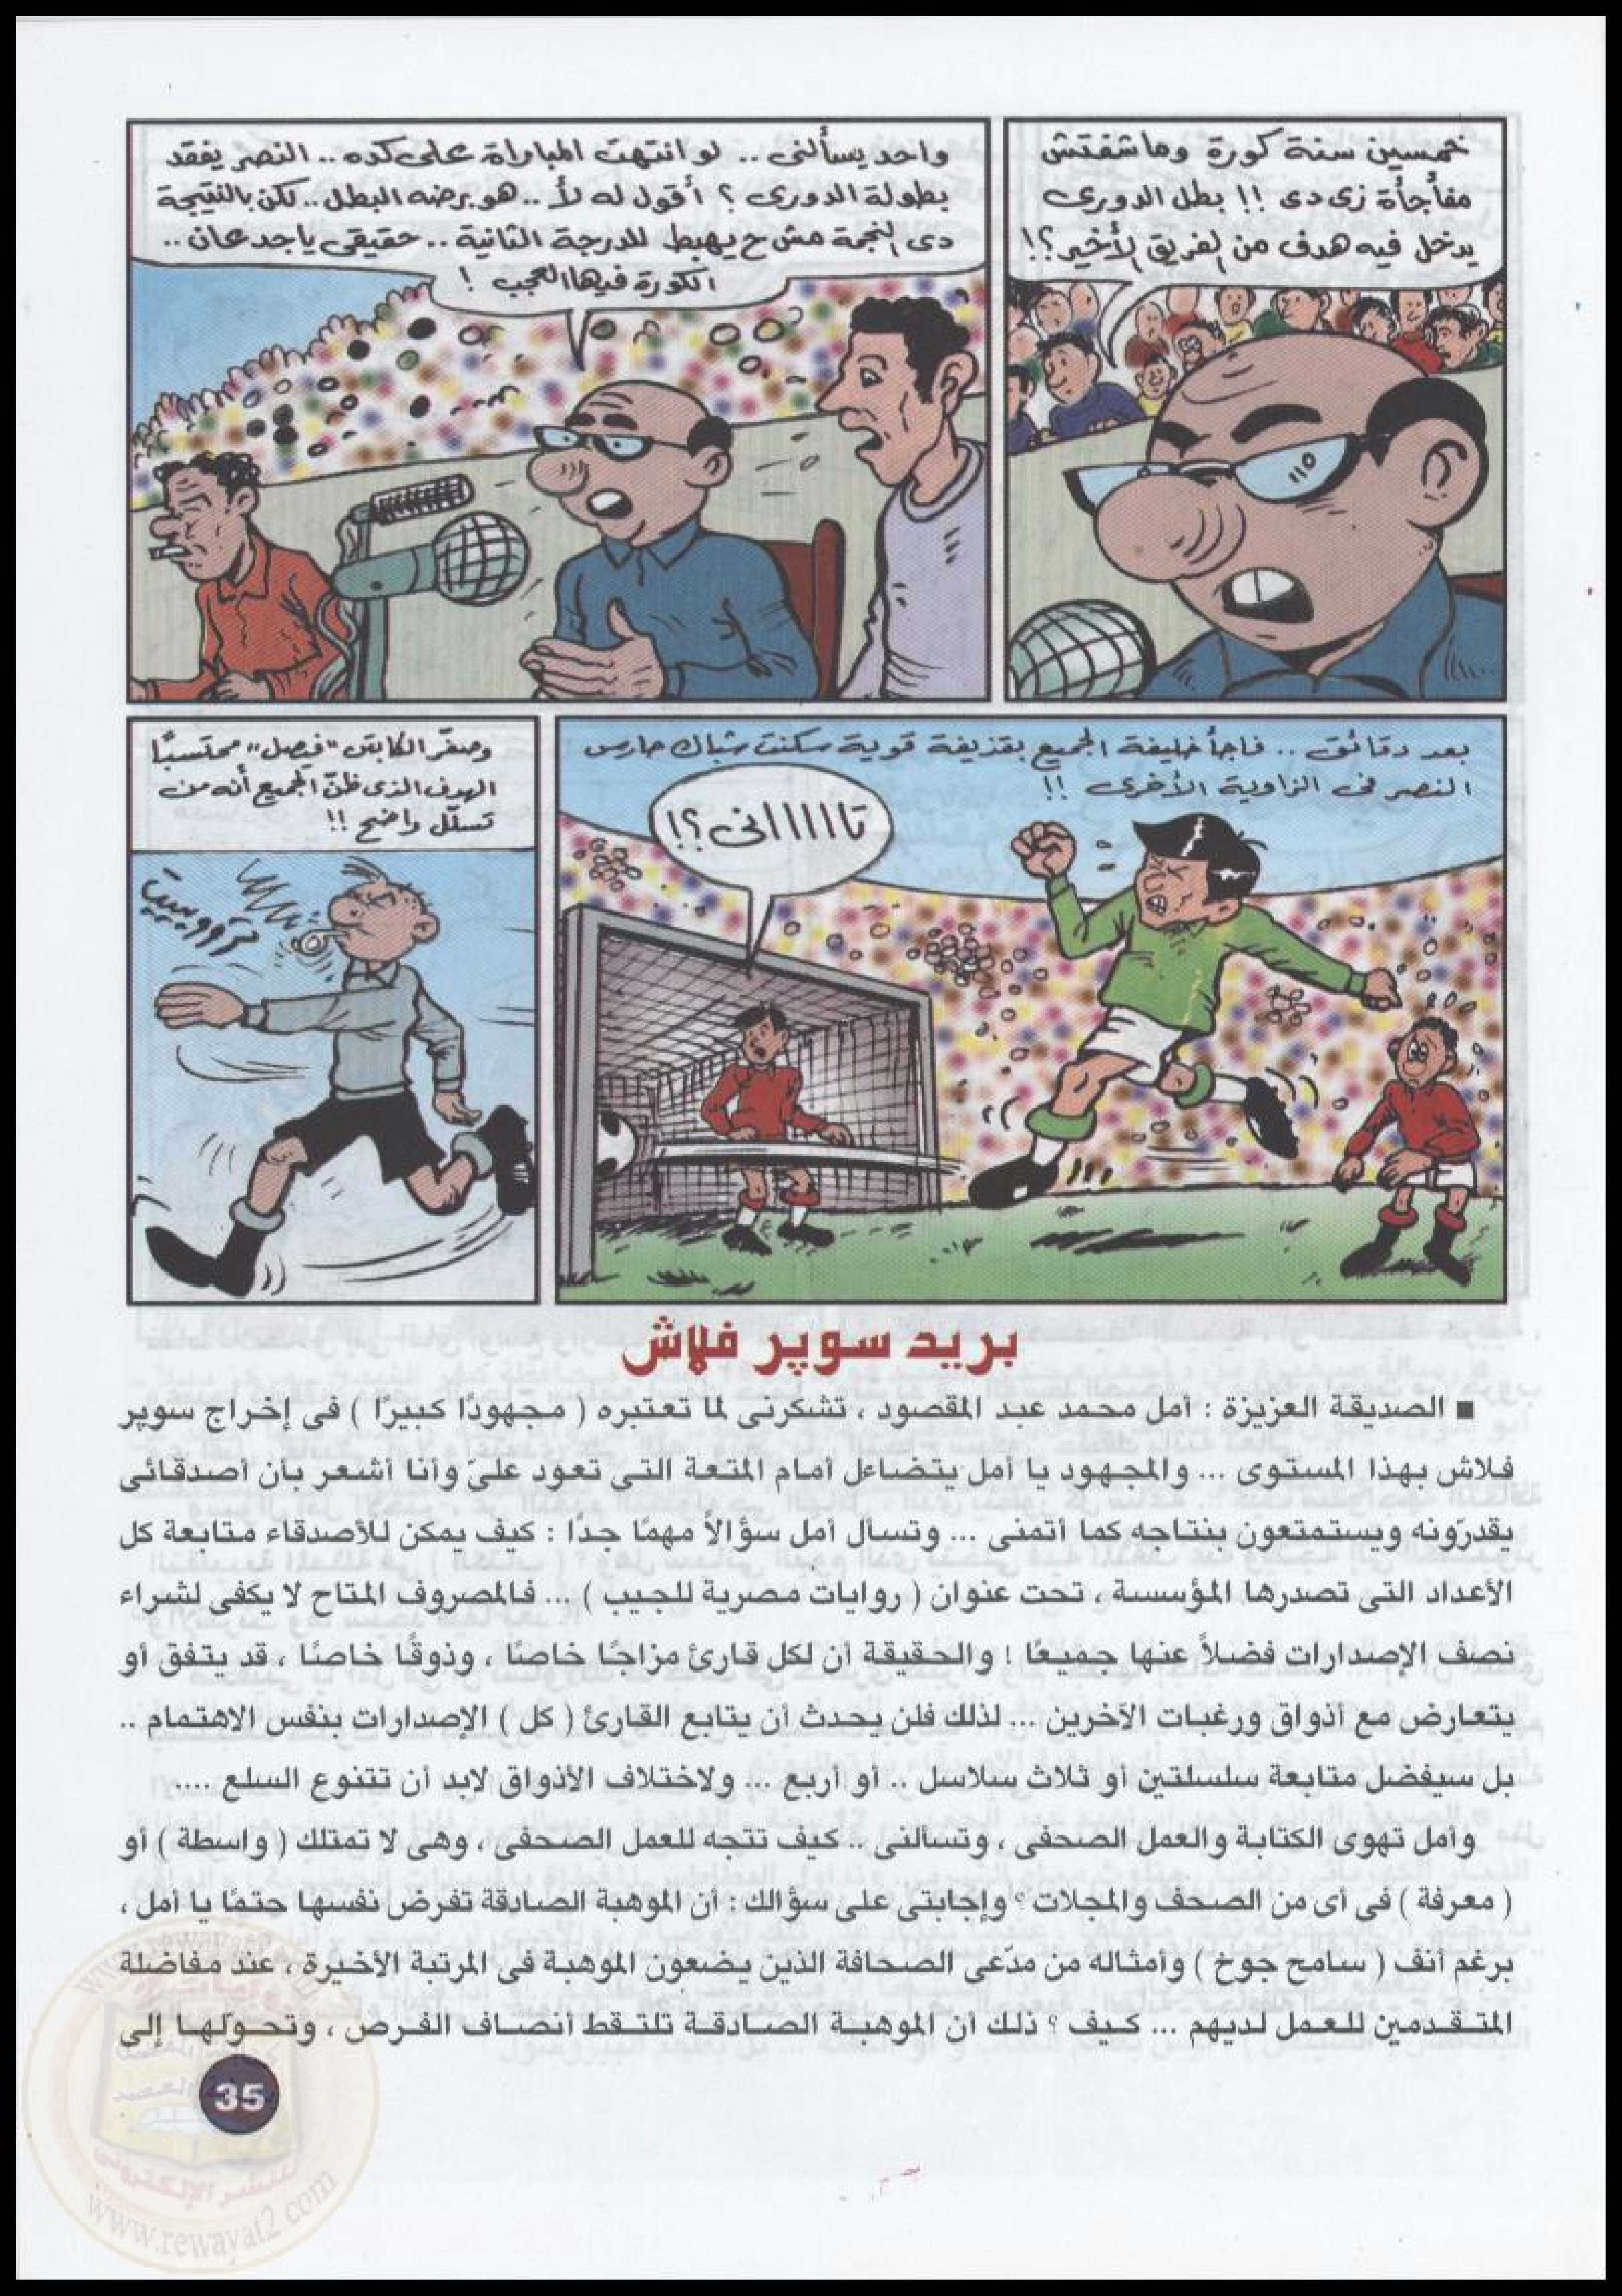 خمسين سنة كورة وماشفتش
مفاجأة زى دى !! بطل الدورى
يدخل فيه هدف من الفريق الأخير؟!
واحد يسألنى .. لو انتهت المباراة على كده .. النصر يفقد
بطولة الدورى ؟ أقول له لأ .. هو برضه البطل .. لكن بالنتيجة
دى النجمة مش ح يهبط للدرجة الثانية .. حقيقى ياجدعان ..
الكورة فيها العجب !
بعد دقائق .. فاجأ خليفة الجميع بقذيفة قوية سكنت شباك حارس
النصر فى الزاوية الأخرى !!
تااااانى؟!
وصفّر الكابتن "فيصل" محتسبًا
الهدف الذى ظنّ الجميع أنه من
تسلّل واضح !!
بريد سوپر فلاش
■ الصديقة العزيزة : أمل محمد عبد المقصود ، تشكرنى لما تعتبره ( مجهودًا كبيرًا ) فى إخراج سوپر
فلاش بهذا المستوى ... والمجهود يا أمل يتضاءل أمام المتعة التى تعود علىّ وأنا أشعر بأن أصدقائى
يقدرّونه ويستمتعون بنتاجه كما أتمنى ... وتسأل أمل سؤالاً مهمًا جدًا : كيف يمكن للأصدقاء متابعة كل
الأعداد التى تصدرها المؤسسة ، تحت عنوان ( روايات مصرية للجيب ) ... فالمصروف المتاح لا يكفى لشراء
نصف الإصدارات فضلاً عنها جميعًا ! والحقيقة أن لكل قارئ مزاجًا خاصًا ، وذوقًا خاصًا ، قد يتفق أو
يتعارض مع أذواق ورغبات الآخرين ... لذلك فلن يحدث أن يتابع القارئ ( كل ) الإصدارات بنفس الاهتمام ..
بل سيفضل متابعة سلسلتين أو ثلاث سلاسل .. أو أربع ... ولاختلاف الأذواق لابد أن تتنوع السلع ....
وأمل تهوى الكتابة والعمل الصحفى ، وتسألنى .. كيف تتجه للعمل الصحفى ، وهى لا تمتلك ( واسطة ) أو
( معرفة ) فى أى من الصحف والمجلات ؟ وإجابتى على سؤالك : أن الموهبة الصادقة تفرض نفسها حتمًا يا أمل ،
برغم أنف ( سامح جوخ ) وأمثاله من مدّعى الصحافة الذين يضعون الموهبة فى المرتبة الأخيرة ، عند مفاضلة
المتقدمين للعمل لديهم ... كيف ؟ ذلك أن الموهبة الصادقة تلتقط أنصاف الفرص ، وتحوّلها إلى
35
www.rewayat2.com